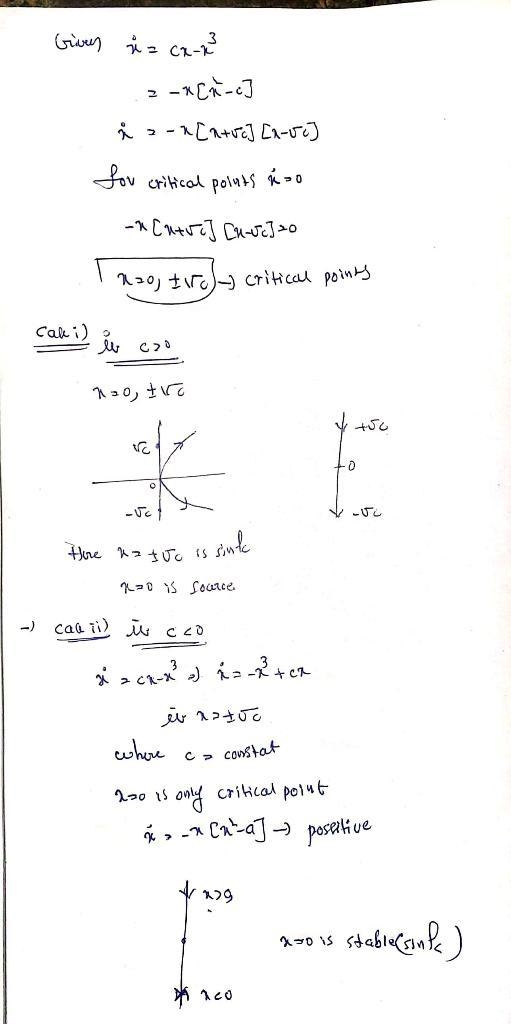 Given ẋ = cx-x³
= -x[x²-c]
ẋ = -x[x+√c][x-√c]
for critical points ẋ=0
-x[x+√c][x-√c]=0
x=0, ±√c → critical points
Case i) c>0
x=0, ±√c
√c
0
-√c
+√c
0
-√c
Here x=±√c is sink
x=0 is source
→ case ii) c<0
ẋ = cx-x³ ⇒ ẋ = -x³+cx
x=±√c
where c = constat
x=0 is only critical point
ẋ = -x[x²-a] → posetive
x>0
x=0 is stable(sink)
x<0